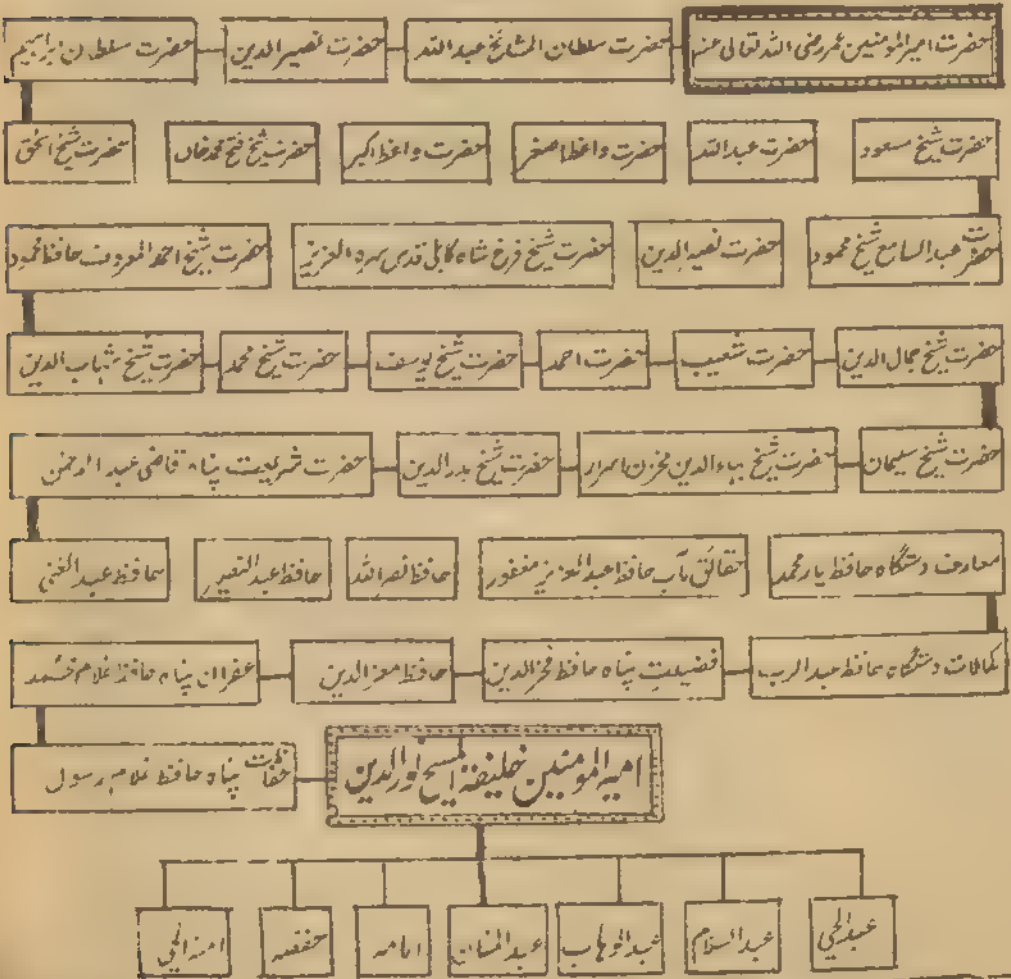 حضرت امیرالمومنین عمر رضی اللہ تعالیٰ عنہ حضرت سلطان المشائخ عبد اللہ حضرت نصیر الدین حضرت سلطان ابراہیم
حضرت شیخ مسعود حضرت عبد اللہ حضرت واعظ اصغر حضرت واعظ اکبر حضرت شیخ فتح محمد خاں حضرت شیخ اسحٰق
حضرت عبد السامع شیخ محمود حضرت نصیر الدین حضرت شیخ فرخ شاہ کابلی قدس سرہ العزیز حضرت شیخ احمد المعروف حافظ محمود
حضرت شیخ جمال الدین حضرت شعیب حضرت احمد حضرت شیخ یوسف حضرت شیخ محمد حضرت شیخ شہاب الدین
حضرت شیخ سلیمان حضرت شیخ بہاء الدین مخزن اسرار حضرت شیخ بدر الدین حضرت شریعت پناہ قاضی عبد الرحمٰن
معارف دستگاہ حافظ یار محمد حقائق مآب حافظ عبد العزیز مغفور حافظ نصر اللہ حافظ عبد النصیر حافظ عبد الغنی
کمالات دستگاہ حافظ عبد الرب فضیلت پناہ حافظ فخر الدین حافظ معز الدین غفران پناہ حافظ غلام محمد
پناہ حافظ غلام رسول امیر المومنین خلیفۃ المسیح نور الدین
عبد الحی عبد السلام عبد الوہاب عبد المنان امامہ حفصہ امۃ الحی